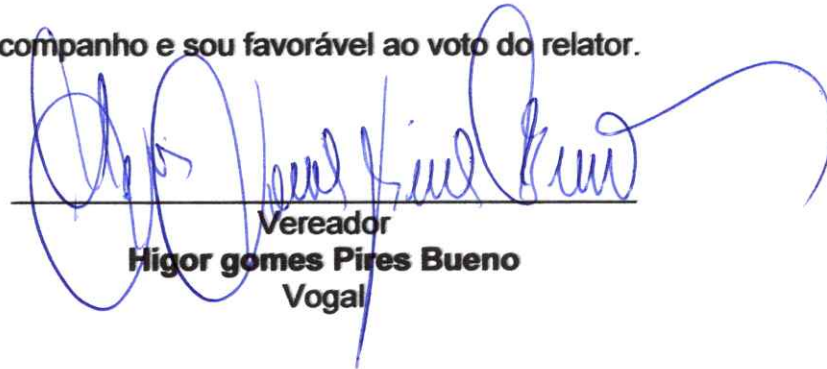 companho e sou favorável ao voto do relator.
Vereador
Higor gomes Pires Bueno
Vogal